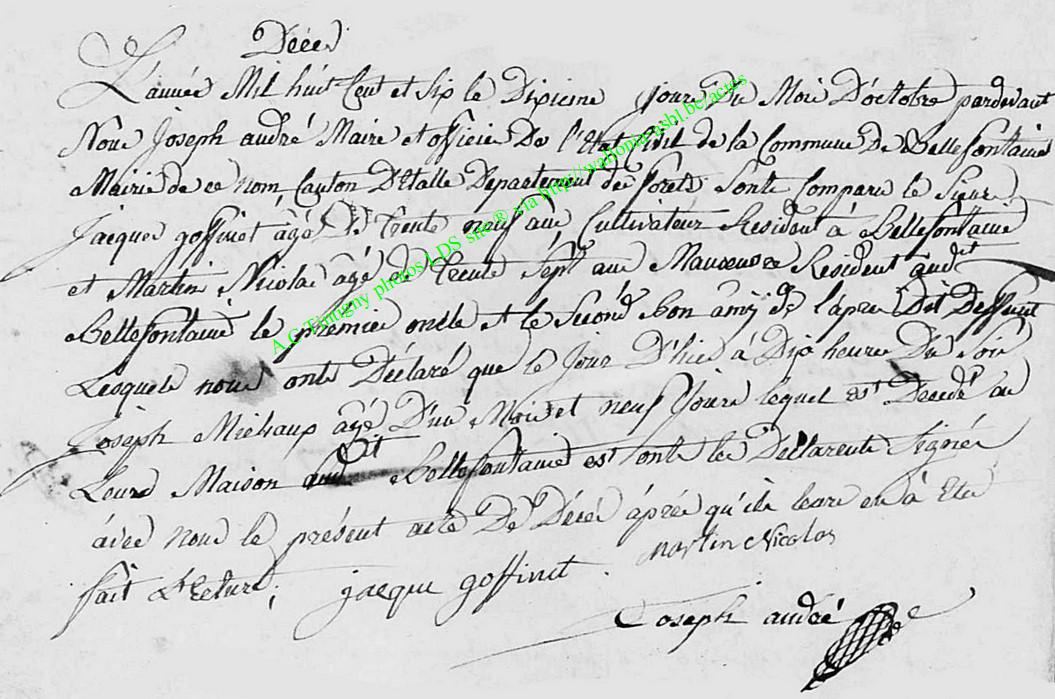 Décès
L'année Mil huit Cent et Six le Dixieme jour Du Mois D'octobre pardevant
Nous Joseph andré Maire et officier De l'état Civil de la Commune De Bellefontaine
Mairie de ce nom Canton D'Etalle Département des forêts Sonts Comparu le Sieurs
Jacques goffinet âgé De Trente neuf ans Cultivateur Résident à Bellefontaine
et Martin Nicolas âgé de Trente Sept ans Résident audit
Bellefontaine le premier oncle et le Second bon amis de l'apres Dit Deffunt
Lesquels nous onts Déclaré que le Jour D'hier à Dix heures Du Soir
Joseph Michaux âgé D'un Mois et neuf Jours lequel est Décédé au
Leurs Maison audit Bellefontaine est onts les Déclarents Signés
avec nous le présent acte De Décès âprés qu'ils leurs en à Eté
fait L'ecture; jacque goffinet . martin Nicolas
Joseph andré
A.G Tintigny photos LDS site® via http://walloniaasbl.be/actes